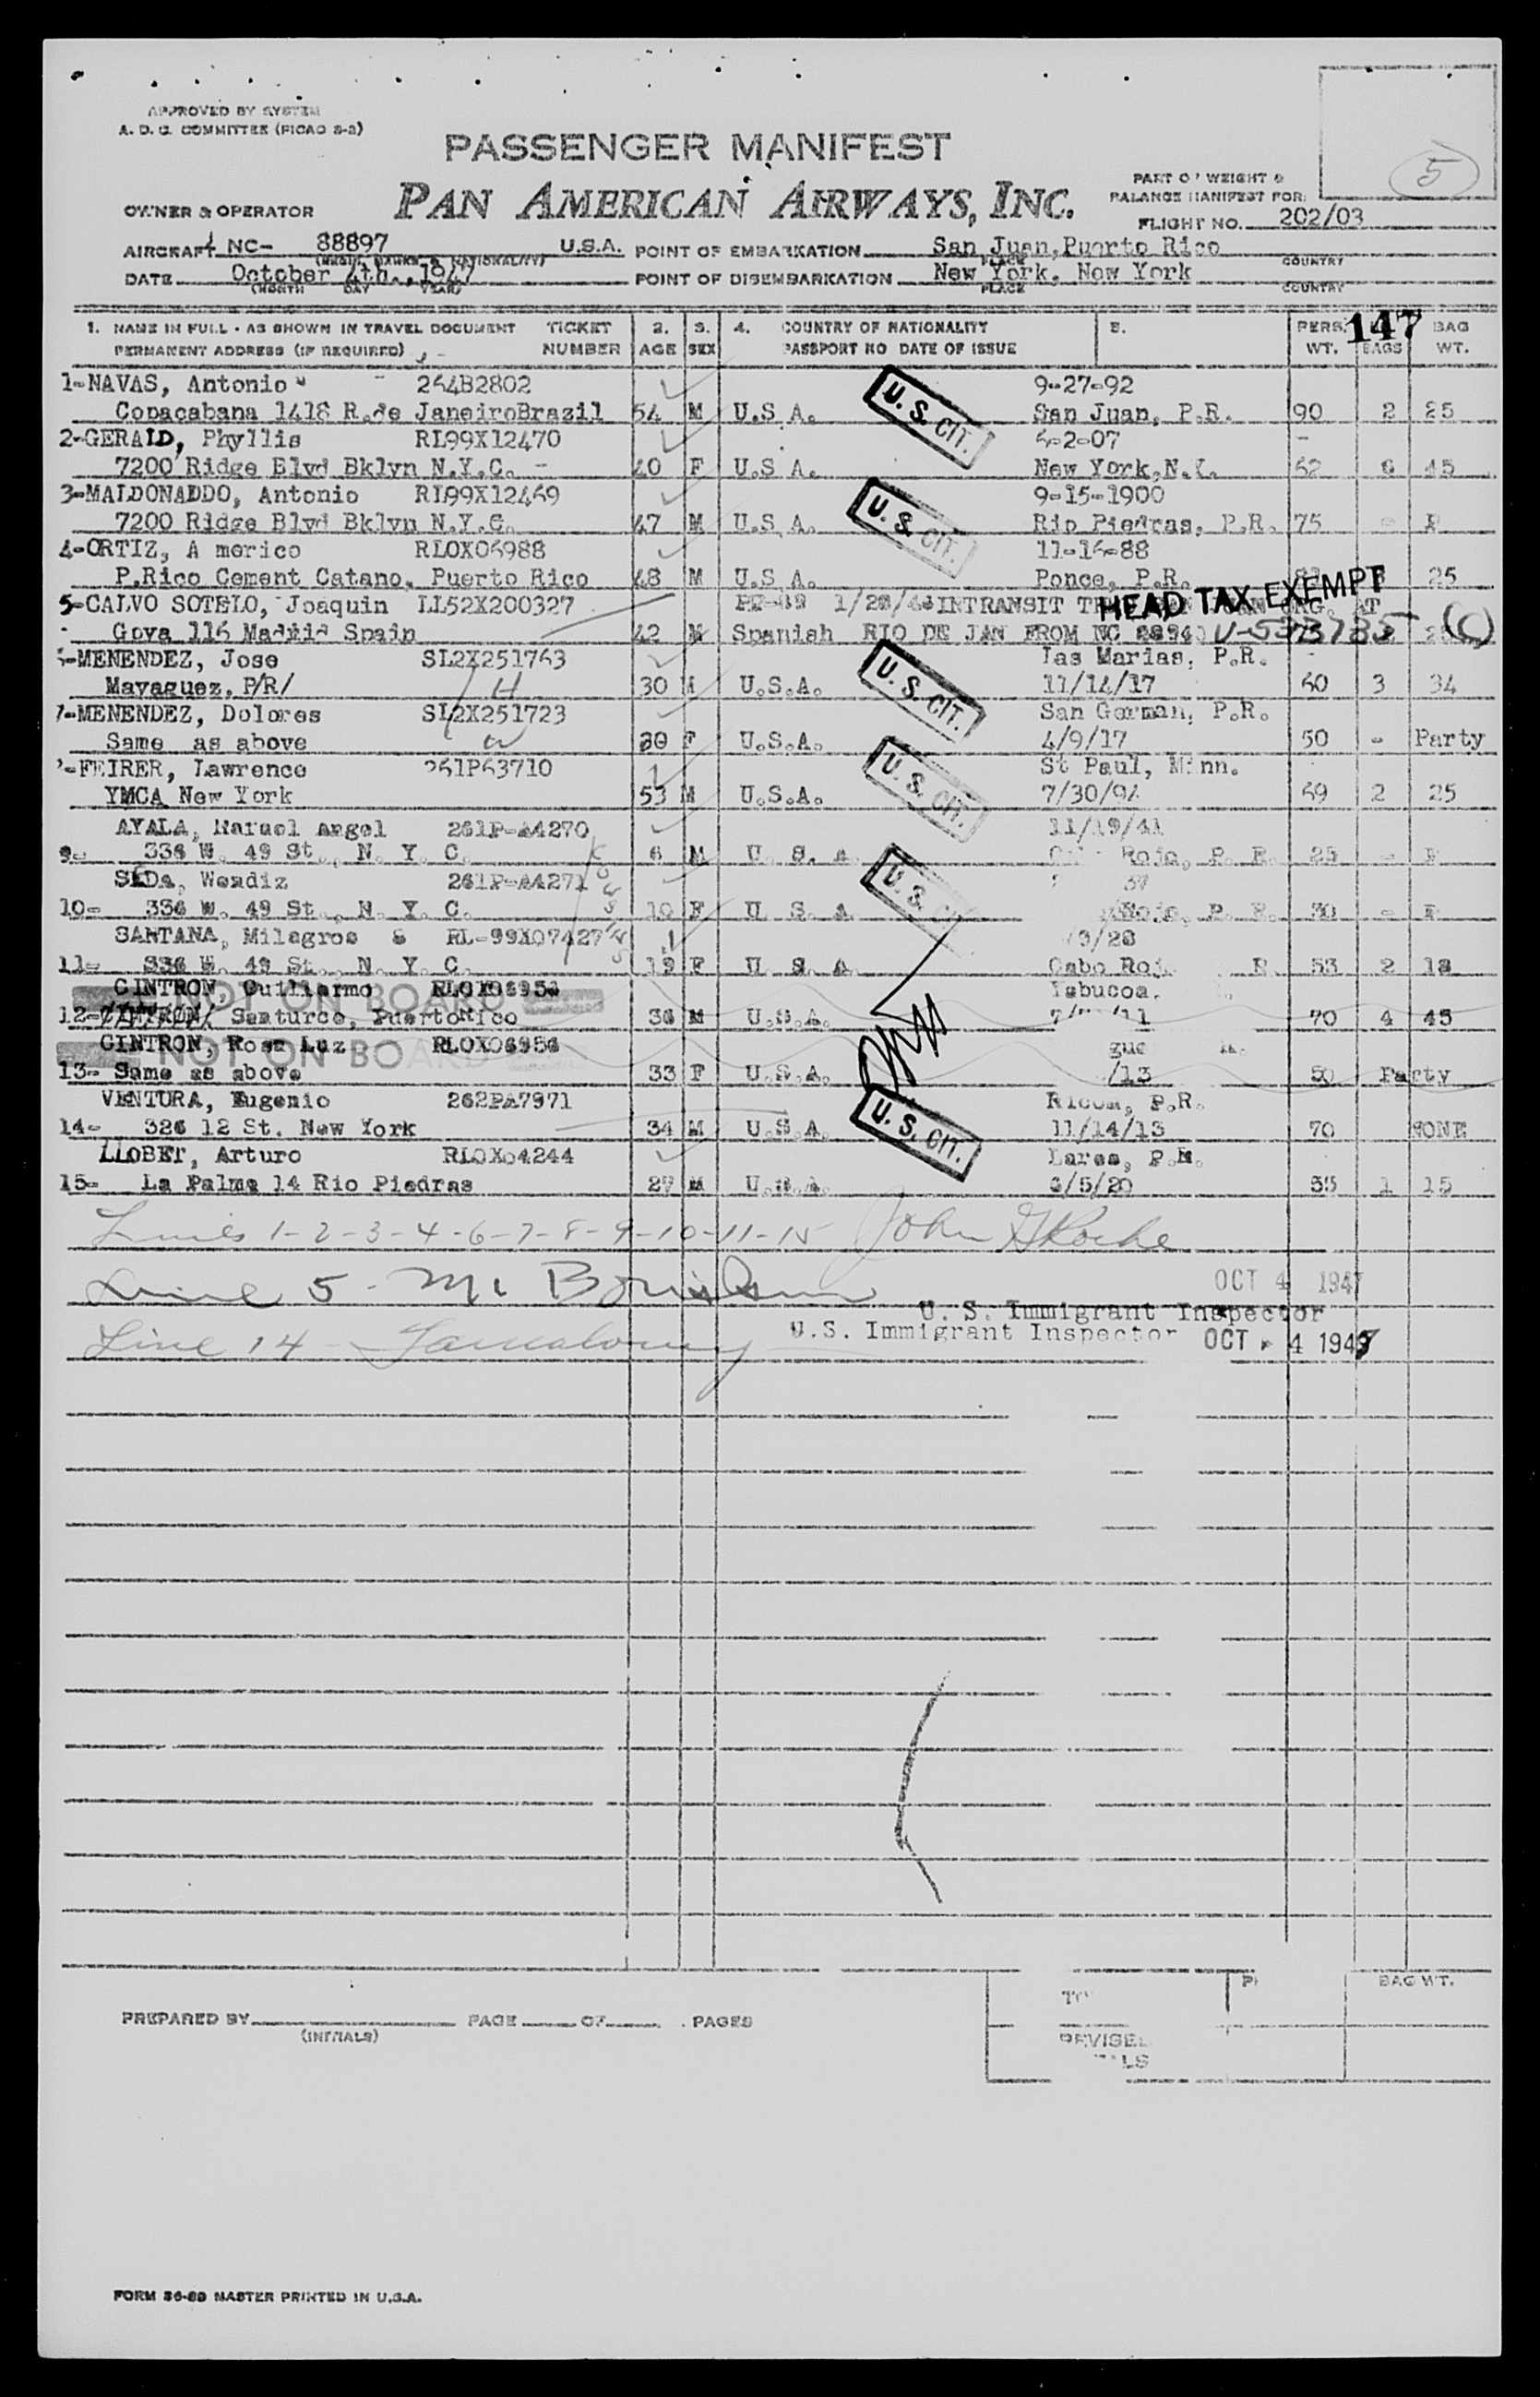 APPROVED BY SYSTEM
A. D. C. COMMITTEE (PICAO S-2)
PASSENGER MANIFEST
5
PART OF WEIGHT &
BALANCE MANIFEST FOR:
OWNER & OPERATOR PAN AMERICAN AIRWAYS, INC.
FLIGHT NO. 202/03
AIRCRAFT NC- 88897 U.S.A. POINT OF EMBARKATION San Juan, Puerto Rico
PLACE COUNTRY
DATE October 4th., 1947 POINT OF DISEMBARKATION New York, New York
(MONTH DAY YEAR) PLACE COUNTRY
1. NAME IN FULL - AS SHOWN IN TRAVEL DOCUMENT TICKET 2. 3. 4. COUNTRY OF NATIONALITY 5. PERS. 147 BAG
PERMANENT ADDRESS (IF REQUIRED) NUMBER AGE SEX PASSPORT NO DATE OF ISSUE WT. BAGS WT.
1-NAVAS, Antonio 264B2802 9-27-92
Copacabana 1418 R.de JaneiroBrazil 54 M U.S A. U.S. CIT. San Juan, P.R. 90 2 25
2-GERALD, Phyllis RL99X12470 -2-07
7200 Ridge Blvd Bklyn N.Y.C. - 40 F U.S A. New York,N.Y. 62 6 45
3-MALDONADDO, Antonio RL99X12469 9-15-1900
7200 Ridge Blvd Bklyn N.Y.C. 47 M U.S A. U.S. CIT. Rio Piedras, P.R. 75 - P
4-ORTIZ, A merico RLOX06988 11-16-88
P.Rico Cement Catano, Puerto Rico 48 M U.S A. Ponce, P.R. 25
HEAD TAX EXEMPT
5-CALVO SOTELO, Joaquin LL52X200327 INTRANSIT
Goya 116 Madrid Spain 42 M Spanish RIO DE JAN FROM NC (C)
-MENENDEZ, Jose SL2X251763 Las Marias, P.R.
Mayaguez, P/R/ 30 U.S.A. U.S. CIT. 11/14/17 60 3 34
-MENENDEZ, Dolores SL2X251723 San German, P.R.
Same as above 30 F U.S.A. 4/9/17 50 - Party
-FEIRER, Lawrence 261P63710 St Paul, Minn.
YMCA New York 53 M U.S.A. U.S. CIT. 7/30/94 69 2 25
AYALA, Rafael Angel 261P-A4270 11/19/41
9- 336 W. 49 St., N. Y. C. 6 M U. S. A. Rojo, P. R. 25 - P
SEDA, Wendiz 261P-A4271 37
10- 336 W. 49 St., N. Y. C. 10 F U S A. U.S. Rojo, P. R. 30 - P
SANTANA, Milagros S RL-99X07427 /3/28
11- 336 W. 49 St., N. Y. C. 19 F U S A. Cabo Roj R 53 2 18
CINTRON, Guillermo RLOX06956 Yabucoa,
NOT ON BOARD
12- CINTRON/ Santurce, Puerto Rico 36 M U.S.A. /11 70 4 45
CINTRON, Rosa Luz RLOX06956
NOT ON BOARD
13- Same as above 33 F U.S.A. /13 50 Party
VENTURA, Eugenio 262PA7971 P.R.
14- 326 12 St. New York 34 M U.S.A. U.S. CIT. 11/14/13 70 NONE
LLOBET, Arturo RLOX04244 Lares, P.R.
15- La Palma 14 Rio Piedras 27 M U.S.A. 6/5/20 55 1 15
Lines 1-2-3-4-6-7-8-9-10-11-15 John G Roche
Line 5 - OCT 4 1947
U. S. Immigrant Inspector
Line 14 U.S. Immigrant Inspector OCT 4 1947
BAG WT.
PREPARED BY PAGE OF PAGES
(INITIALS)
FORM 36-89 MASTER PRINTED IN U.S.A.